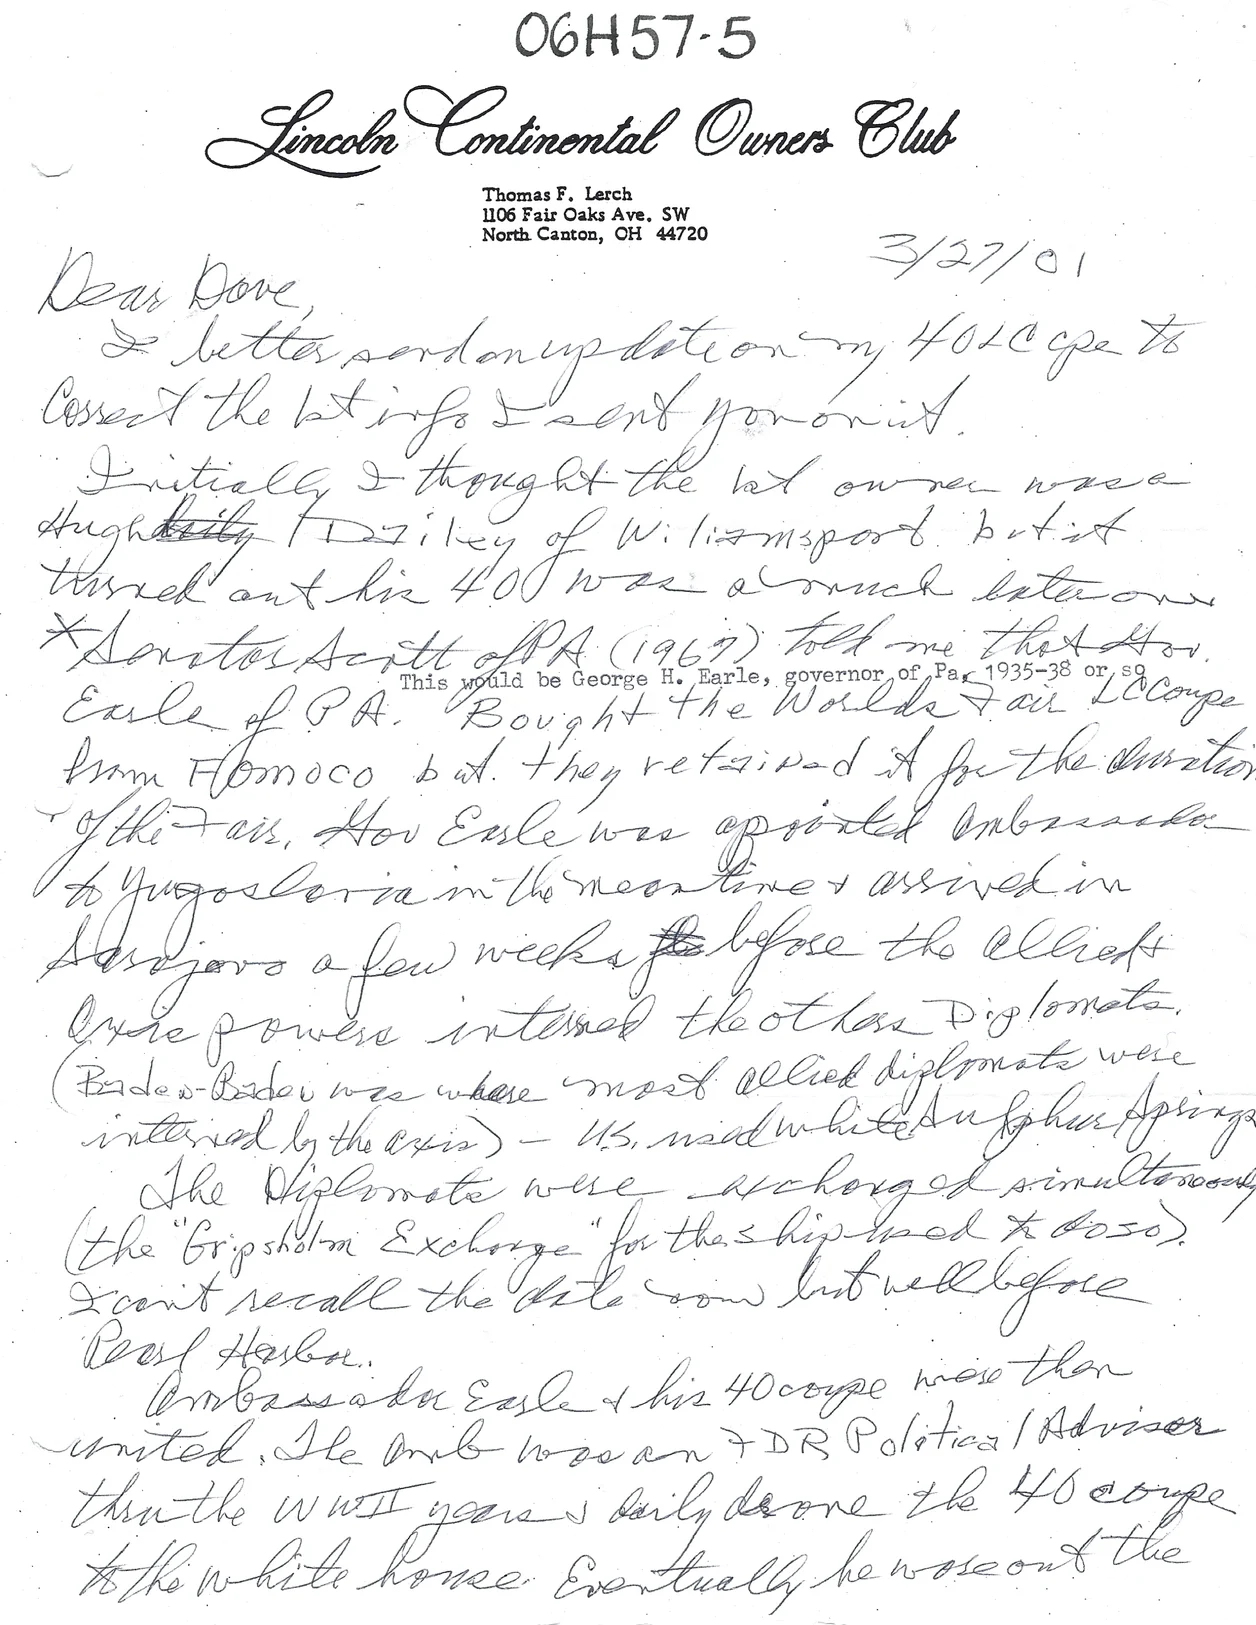 06H57-5
Lincoln Continental Owners Club
Thomas F. Lerch
1106 Fair Oaks Ave. SW
North Canton, OH 44720
3/27/01
Dear Dave,
I better send an update on my 40 LC cpe to
correct the 1st info I sent you on it.
Initially I thought the 1st owner was a
Hugh Dailey of Williamsport but it
turned out his 40 was a much later one
*Senator Scott of PA (1967) told me that Gov.
This would be George H. Earle, governor of Pa, 1935-38 or so
Earle of PA. Bought the Worlds Fair LC Coupe
from FOMOCO but they retained it for the duration
of the Fair. Gov Earle was apointed Ambassador
to Yugoslavia in the meantime & arrived in
Sarajevo a few weeks before the Allied &
Axis powers interned the others Diplomats.
(Baden-Baden was where most allied diplomats were
interned by the axis) - U.S. used White Sulphur Springs
The Diplomats were exchanged simultaneously
(the "Gripsholm Exchange" for the ship used to do so).
I can't recall the date now but well before
Pearl Harbor.
Ambassador Earle & his 40 coupe were then
united. The Amb was an FDR Political Adviser
thru the WWII years & daily drove the 40 coupe
to the white house. Eventually he wore out the